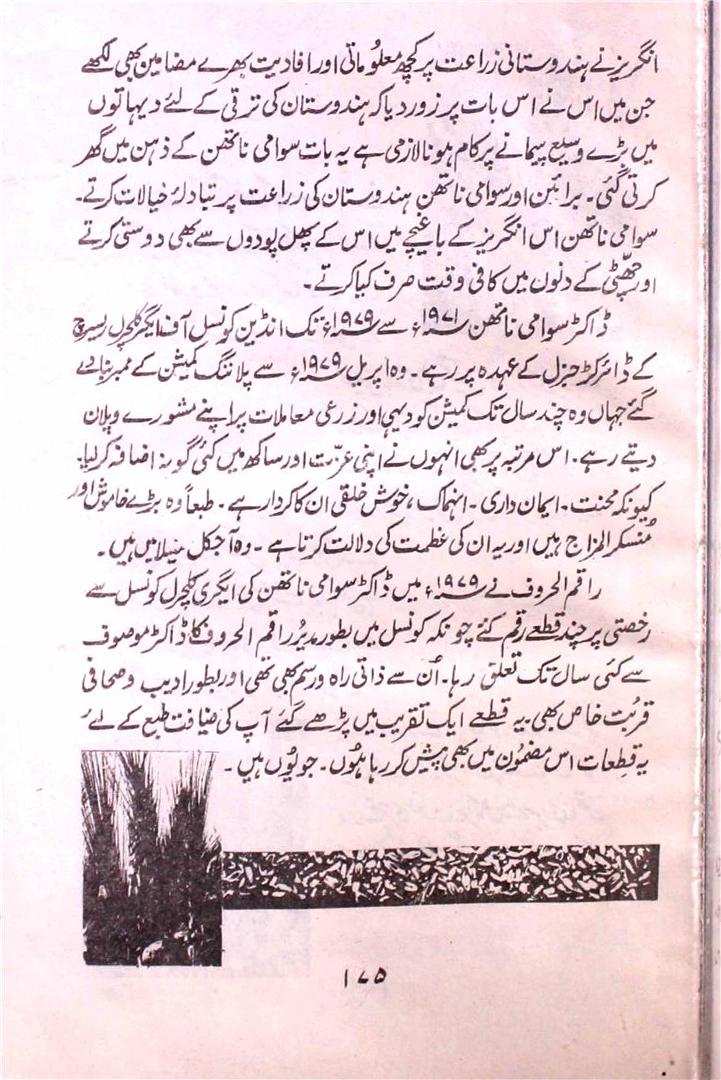 انگریز نے ہندوستانی زراعت پر کچھ معلوُماتی اور افادیت بھرے مضامین بھی لکھے
جن میں اس نے اس بات پر زور دیا کہ ہندوستان کی ترقی کے لئے دیہاتوں
میں بڑے وسیع پیمانے پر کام ہونا لازمی ہے یہ بات سوامی ناتھن کے ذہن میں گھر
کرتی گئی۔ برائین اور سوامی ناتھن ہندوستان کی زراعت پر تبادلۂ خیالات کرتے۔
سوامی ناتھن اس انگریز کے باغیچے میں اس کے پھل پودوں سے بھی دوستی کرتے
اور چھّٹی کے دنوں میں کافی وقت صرف کیا کرتے۔
ڈاکٹر سوامی ناتھن ۱۹۷۱ء سے ۱۹۷۹ء تک انڈین کونسل آف ایگریکلچرل ریسرچ
کے ڈائرکٹر جنرل کے عہدہ پر رہے۔ وہ اپریل ۱۹۷۹ء سے پلاننگ کمیشن کے ممبر بنا دیے
گئے جہاں وہ چند سال تک کمیشن کو دیہی اور زرعی معاملات پر اپنے مشورے و پلان
دیتے رہے۔ اس مرتبہ پر بھی انہوں نے اپنی عزّت اور ساکھ میں کئی گونہ اضافہ کر لیا۔
کیونکہ محنت۔ ایمان داری۔ انہماک، خوش خلقی ان کا کردار ہے۔ طبعاً وہ بڑے خاموش اور
مُنسکر المزاج ہیں اور یہ ان کی عظمت کی دلالت کرتا ہے۔ وہ آجکل منیلا میں ہیں۔
راقم الحروف نے ۱۹۷۹ء میں ڈاکٹر سوامی ناتھن کی ایگری کلچرل کونسل سے
رخصتی پر چند قطعے رقم کئے چونکہ کونسل میں بطور مدیرُ راقم الحروف کا ڈاکٹر موصوف
سے کئی سال تک تعلق رہا۔ اُن سے ذاتی راہ و رسم بھی تھی اور بطور ادیب و صحافی
قربُت خاص بھی۔ یہ قطعے ایک تقریب میں پڑھے گئے آپ کی ضیافت طبع کے لئے
یہ قطعات اس مضموُن میں بھی پیش کر رہا ہوُں۔ جو یوُں ہیں۔
۱۷۵